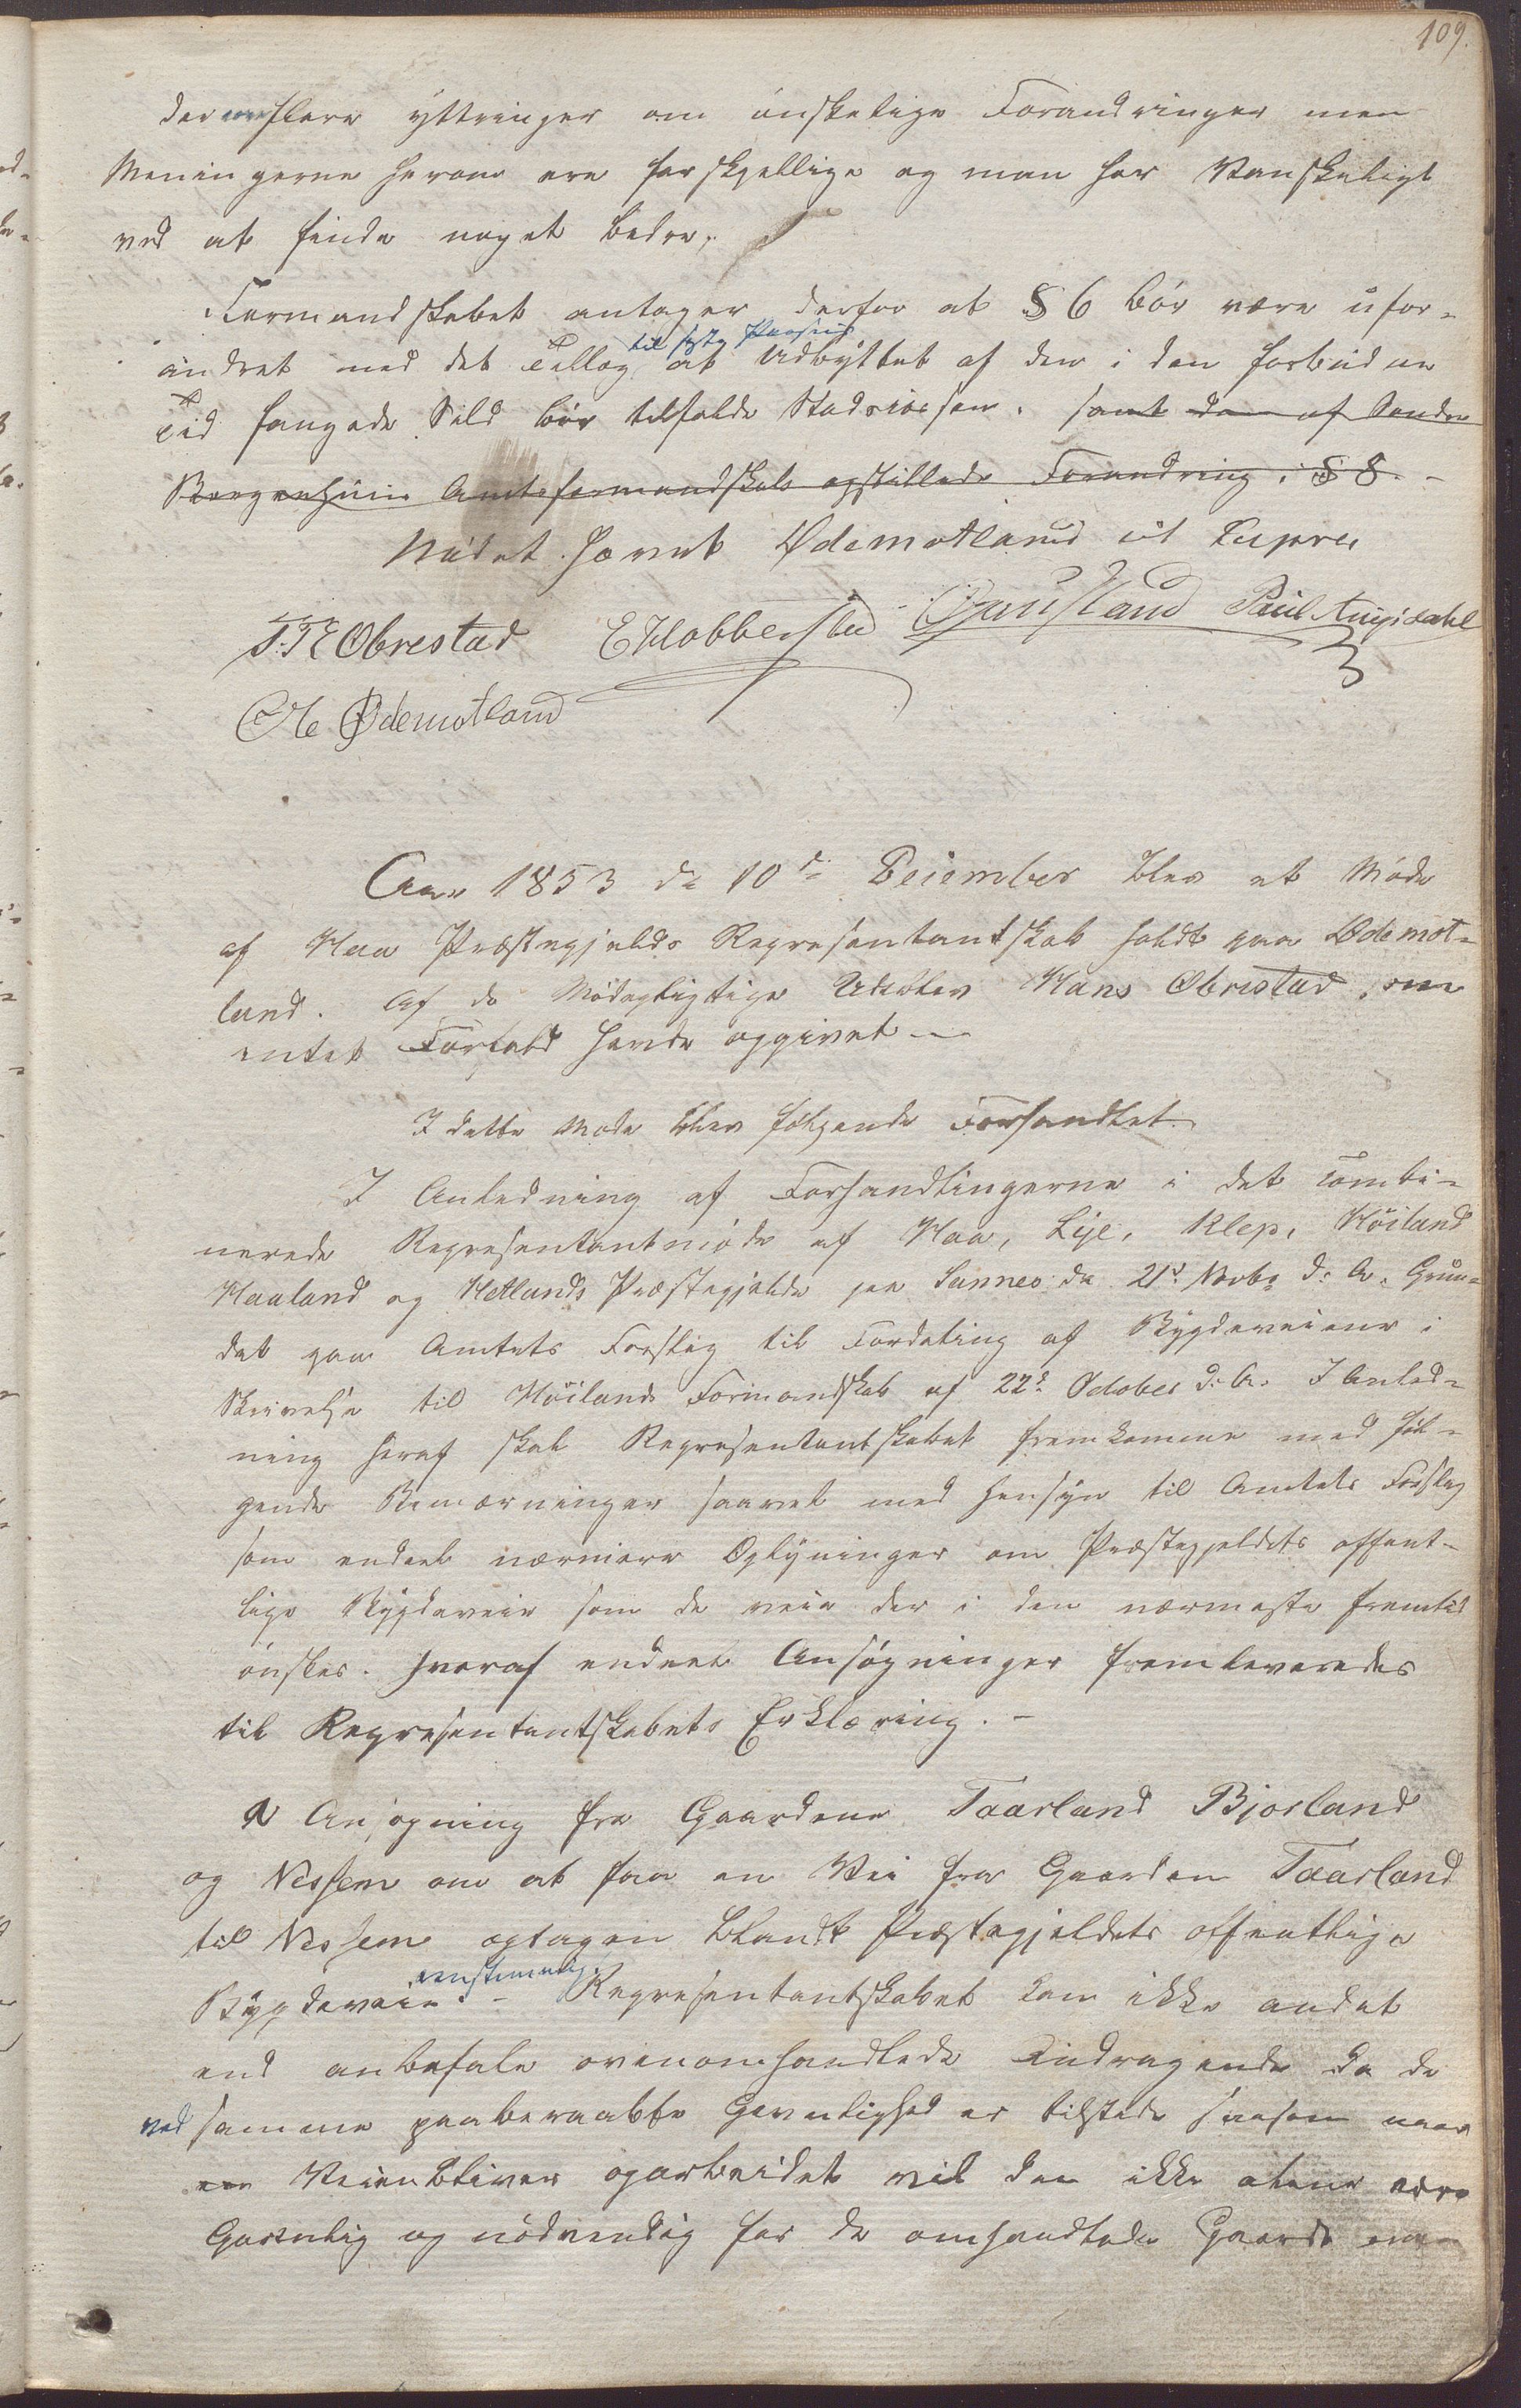 109.
der er flere yttringer om ønskelige Forandringer men
Meningerne herom ere forskjellige og man har Vanskeligt
ved at finde noget bedre.
Formandskabet antager derfor at § 6 bør være ufor-
til sidste Passus
andret med det Tillæg at Udbyttet af den i den forbudne
Tid fangede Sild bør tilfalde Stadskassen. samt den af Søndre
Bergenhuus Amtsformandskab opstillede Forandring i § 8. -
Mødet hævet Ødemotland ut supra
T. T. Obrestad E Hobberstad O Gausland Paul Auigsdahl
Ole Ødemotland
Aar 1853 de 10de December blev et Møde
af Haa Præstegjelds Repræsentantskab holdt paa Ødemot-
land. Af de Mødepligtige Udeblev Hans Obrestad som
intet Forfald havde opgivet -
I dette Møde blev følgende Forhandlet
I Anledning af Forhandlingerne i det combi-
nerede Representantmøde af Haa, Lye, Klep, Höiland
Haaland og Hetlands Præstegjelde paa Sannes de 21de Novbr d: A. Grun-
det paa Amtets Forslag til Fordeling af Bygdeveiene i
Skrivelse til Höilands Formandskab af 22de October d: A. I Anled-
ning heraf skal Repræsentantskabet fremkomme med føl-
gende Bemærninger saavel med Hensyn til Amtets Forslag
som endeel nærmere Oplysninger om Præstegjeldets offent-
lige Bygdeveie som de veie der i den nærmeste fremtid
ønskes. hvoraf endeel Ansøgninger fremleveredes
til Repræsentantskabets Erklæring. -
a Ansøgning fra Gaardene Taarland Bjorland
og Nessem om at faa en Vei fra Gaarden Taarland
til Nessem optagen blandt Præstegjeldets offentlige
eenstemmig.
Bygdeveie. - Repræsentantskabet kan ikke andet
end anbefale ovenomhandlede Andragende da de
ved samme paaberaabte Gavnlighed er tilstede saasom naar
Veien bliver oparbeidet vil den ikke alene være
Gavnlig og nødvendig for de omhandlede Gaarde